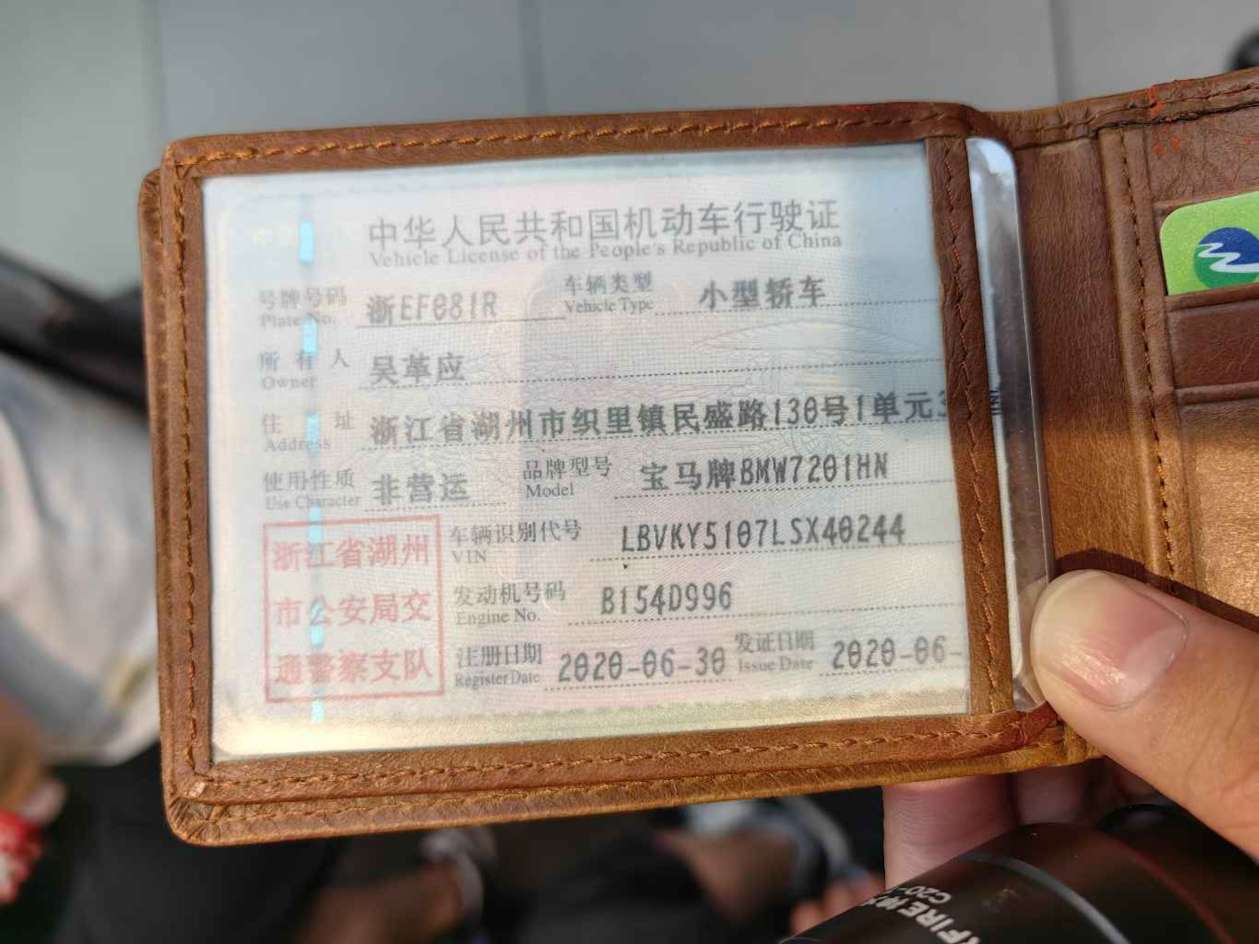 中华人民共和国机动车行驶证
Vehicle License of the People's Republic of China
号牌号码 浙EF081R 车辆类型 小型轿车
Plate No. Vehicle Type
所有人 吴革应
Owner
住址 浙江省湖州市织里镇民盛路130号1单元3
Address
使用性质 非营运 品牌型号 宝马牌BMW7201HN
Use Character Model
浙江省湖州
市公安局交
通警察支队
车辆识别代号 LBVKY5107LSX40244
VIN
发动机号码 B154D996
Engine No.
注册日期 2020-06-30 发证日期 2020-06-
Register Date Issue Date